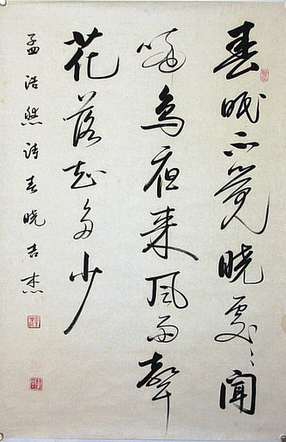 春眠不觉晓处〻闻
啼鸟夜来风雨声
花落知多少
孟浩然诗春晓吉杰